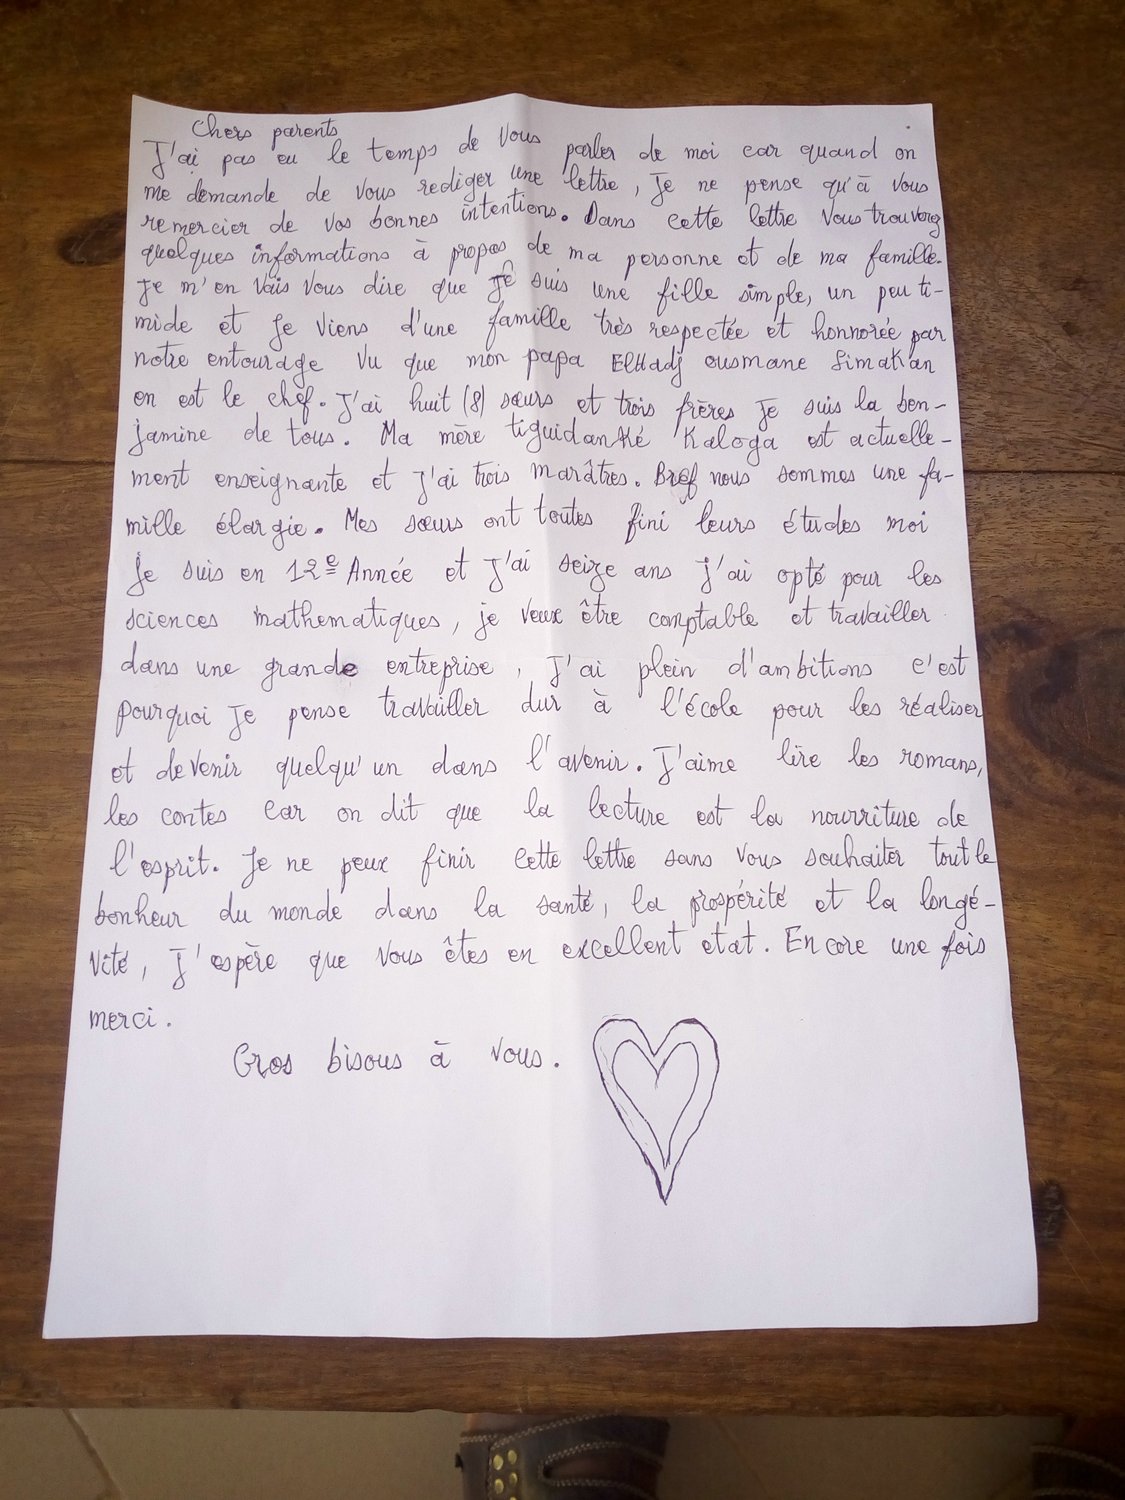 Chers parents
J'ai pas eu le temps de vous parler de moi car quand on
me demande de vous rediger une lettre, je ne pense qu'à vous
remercier de vos bonnes intentions. Dans cette lettre vous trouverez
quelques informations à propos de ma personne et de ma famille.
Je m'en vais vous dire que je suis une fille simple, un peu ti-
mide et je viens d'une famille très respectée et honnorée par
notre entourage vu que mon papa ElHadj ousmane Simakan
en est le chef. J'ai huit (8) sœurs et trois frères je suis la ben-
jamine de tous. Ma mère tiguidanké Kaloga est actuelle-
ment enseignante et j'ai trois marâtres. Bref nous sommes une fa-
mille élargie. Mes sœurs ont toutes fini leurs études moi
je suis en 12e Année et j'ai seize ans j'ai opté pour les
sciences mathematiques, je veux être comptable et travailler
dans une grande entreprise, j'ai plein d'ambitions c'est
pourquoi je pense travailler dur à l'école pour les réaliser
et devenir quelqu'un dans l'avenir. J'aime lire les romans,
les contes car on dit que la lecture est la nourriture de
l'esprit. Je ne peux finir cette lettre sans vous souhaiter tout le
bonheur du monde dans la santé, la prospérité et la longé-
vité, j'espère que vous êtes en excellent etat. Encore une fois
merci.
Gros bisous à vous.